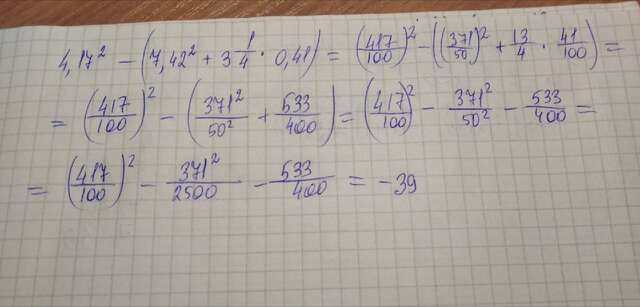 4,17² − (7,42² + 3 1/4 · 0,41) = (417/100)² − ((371/50)² + 13/4 · 41/100) =
= (417/100)² − (371²/50² + 533/400) = (417/100)² − 371²/50² − 533/400 =
= (417/100)² − 371²/2500 − 533/400 = −39